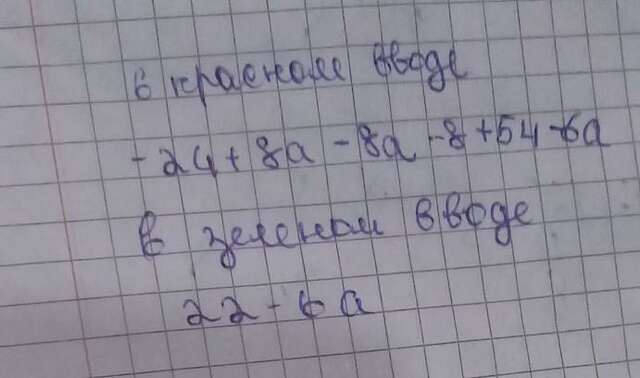 в красном вводе
-24+8a-8a-8+54-6a
в зеленом вводе
22-6a